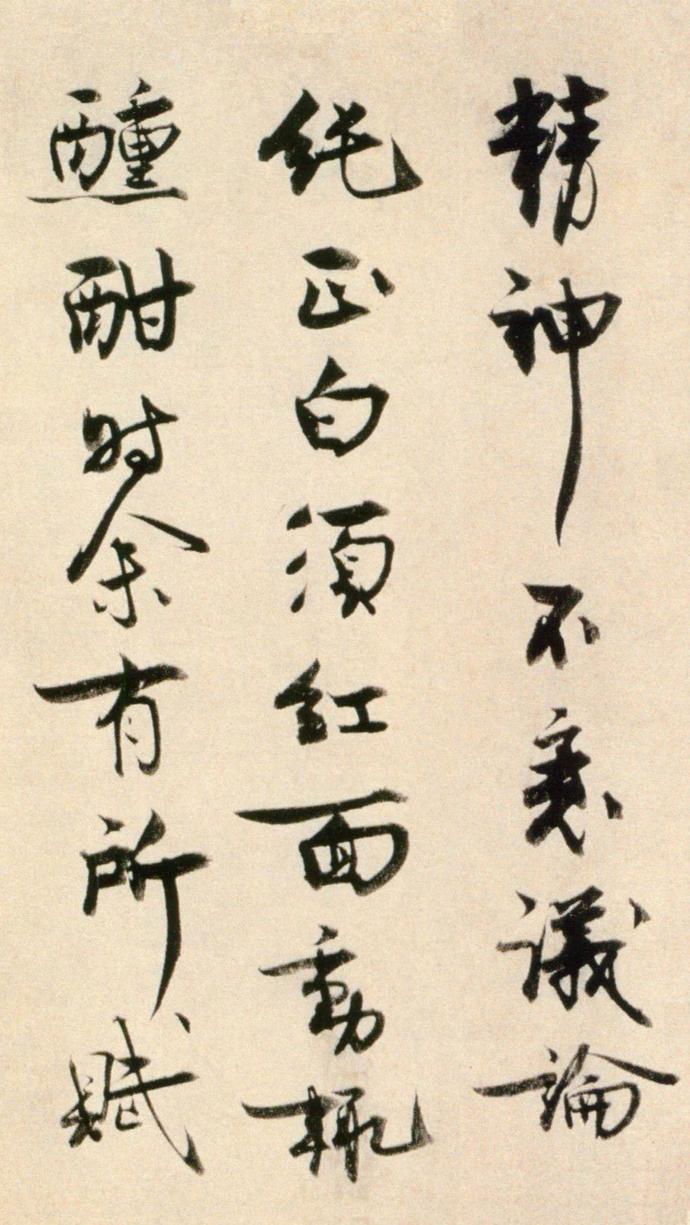 精神不衰議論
純正白須紅面動輒
醺酣时余有所賦